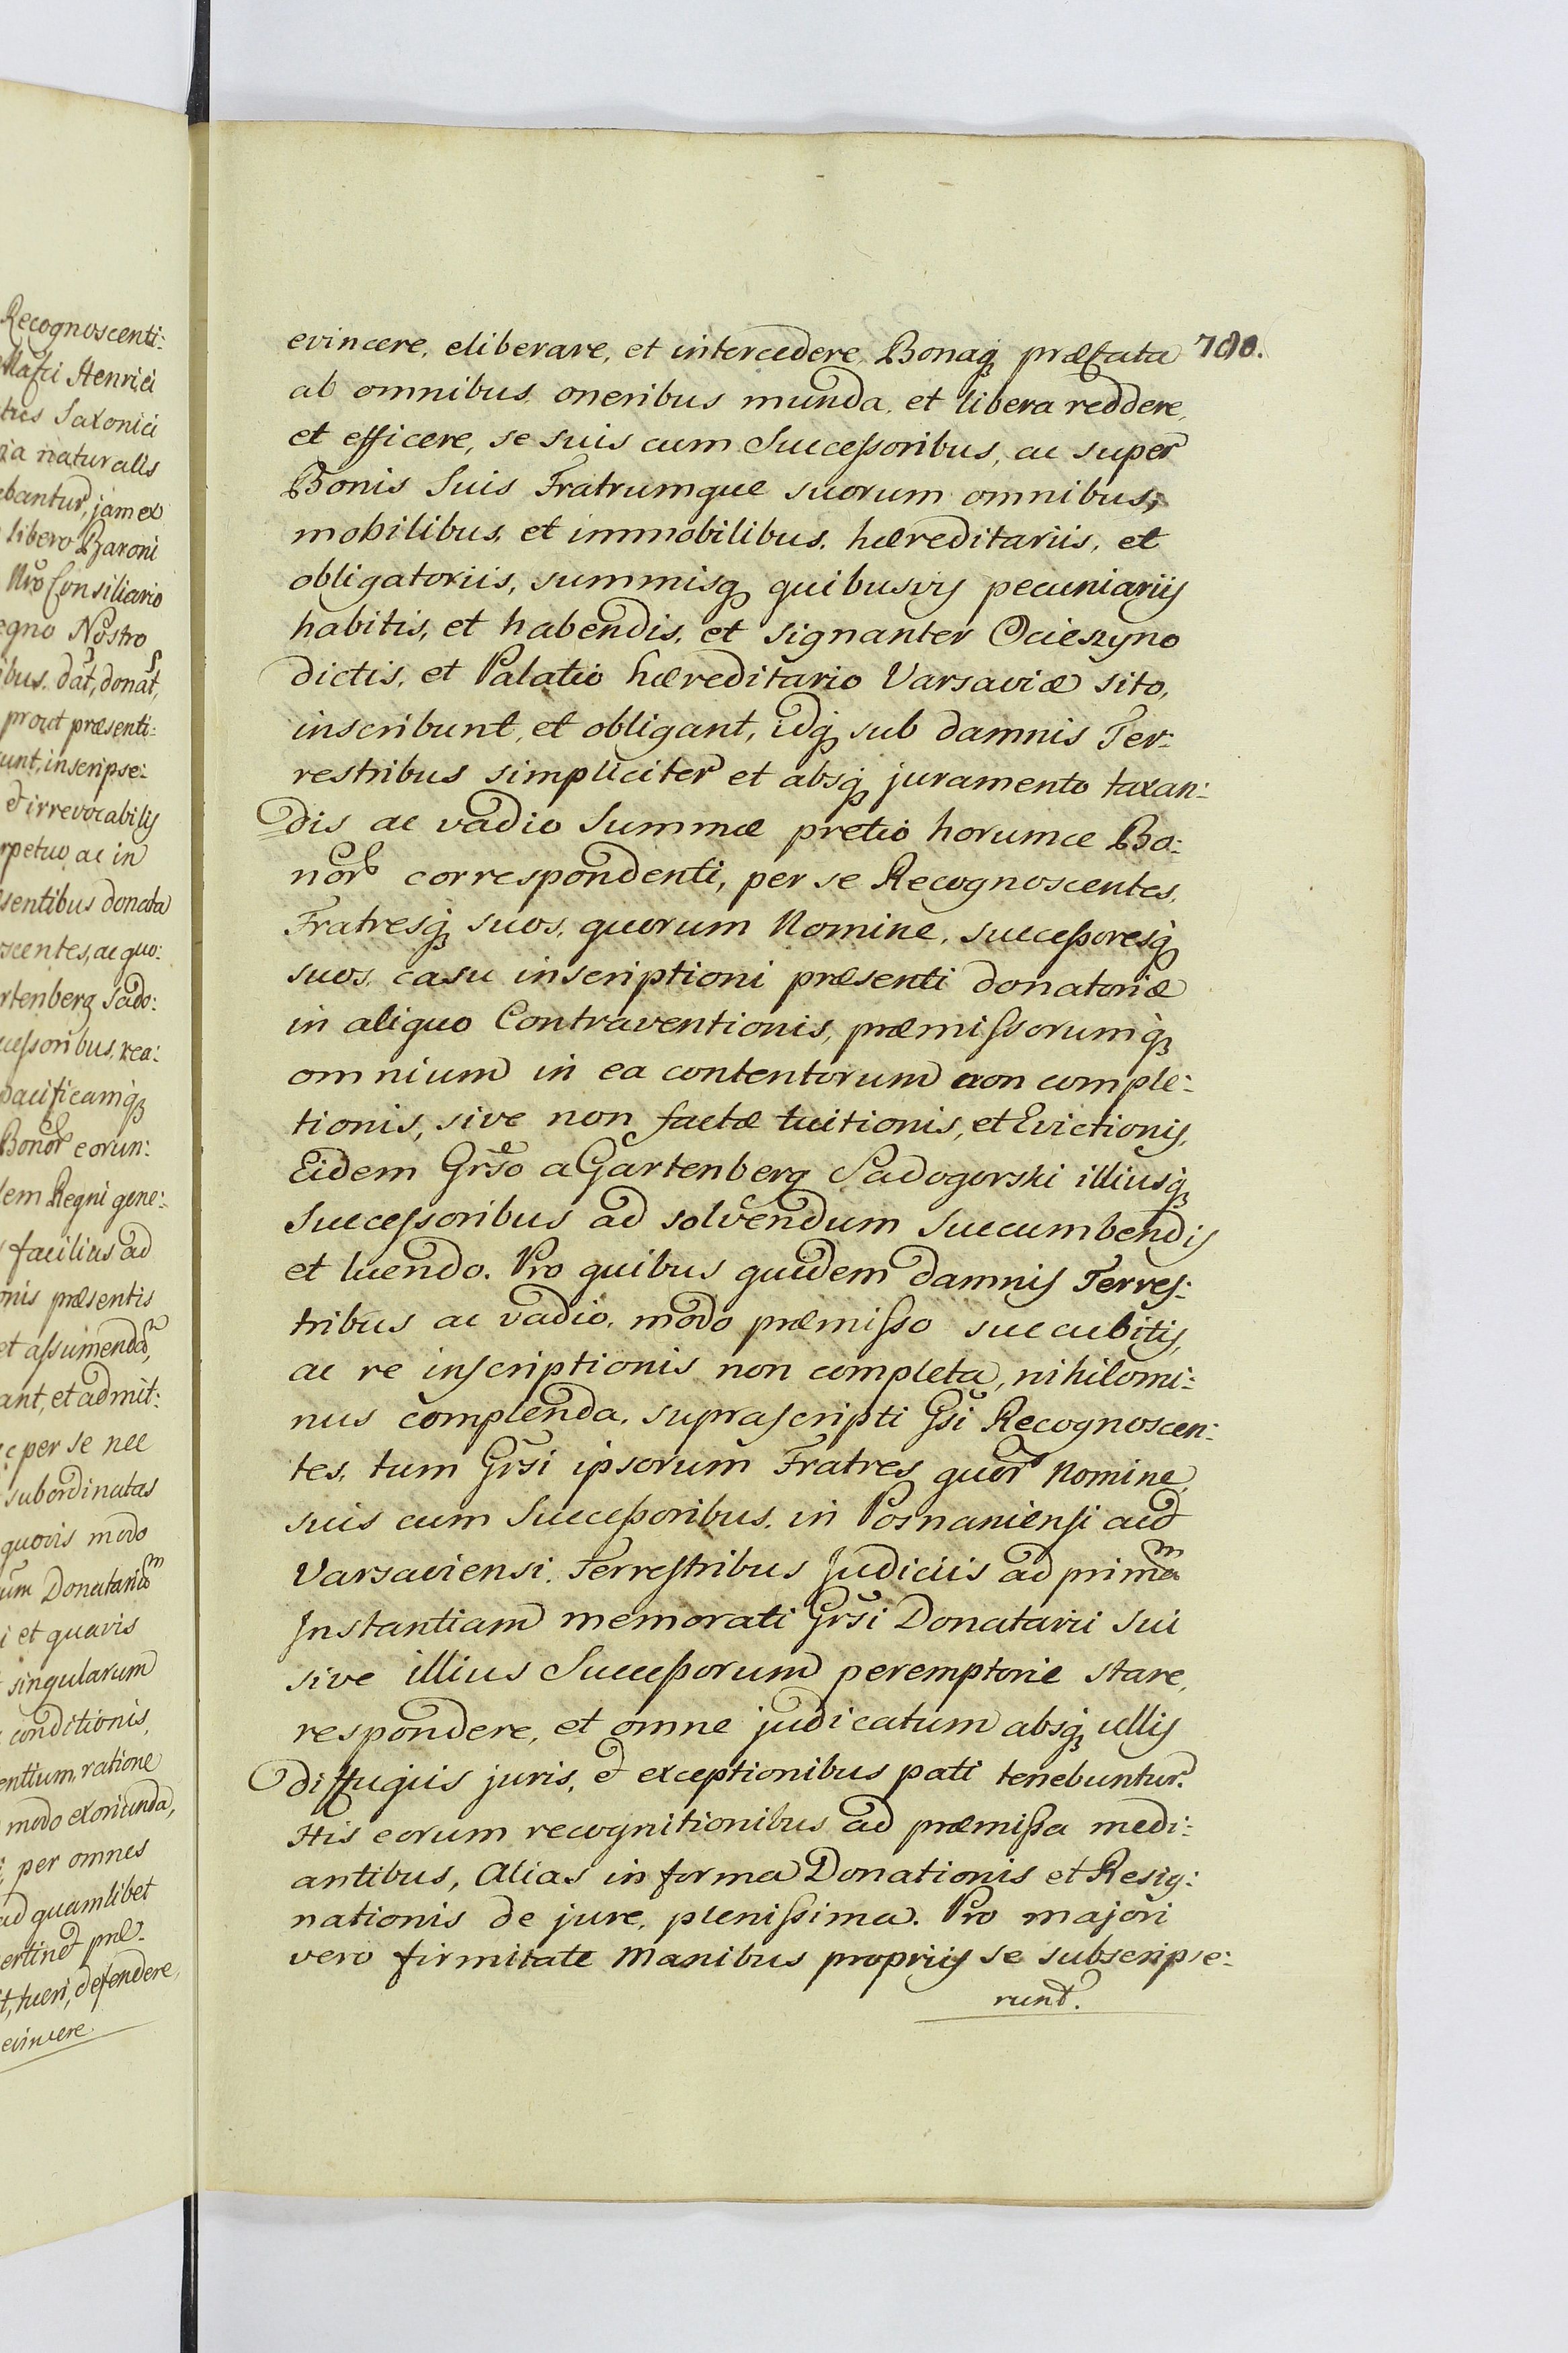 Recognoscenti:
Henrici
Saxonici
naturalis
bantur, jam ex
libero Baroni
Nrõ Consiliario
egno Nostro
ibus. dat, donat,
prout præsenti:
unt, inscripse:
et irrevocabilis
rpetuo, ac in
sentibus donata
scentes, ac quo:
rtenberg Sado:
ucessoribus, rea:
pacificamq
Bonor eorun:
dem Regni gene:
facilius ad
onis præsentis
et assumendam,
ant, et admit:
per se nec
subordinatas
quovis modo
um Donatarium
i et quavis
singularum
conditionis,
entium, ratione
modo exoriunda,
per omnes
ad quamlibet
ertinet præ-
t, tueri, defendere,
evincere.
700.
evincere, eliberare, et intercedere, Bonaq præfata
ab omnibus, oneribus munda, et libera reddere,
et efficere, se suis cum Successoribus, ac super
Bonis Suis Fratrumque suorum omnibus,
mobilibus, et immobilibus, hæreditariis, et
obligatoriis, summisq quibusvis pecuniariis
habitis, et habendis, et signanter Ocieszyno
dictis, et Palatio hæreditario Varsaviæ sito,
inscribunt, et obligant, idq sub damnis Ter:
restribus simpliciter et absq juramento taxan:
dis ac vadio Summæ pretio horumce Bo:
nor correspondenti, per se Recognoscentes,
Fratresq suos, quorum Nomine, successoresq
suos, casu inscriptioni præsenti donatoriæ
in aliquo Contraventionis, præmissorumq
omnium in ea contentorum non comple:
tionis, sive non factæ tuitionis, et Evictionis,
Eidem Grõso a Gartenberg Sadogorski illiusq
Successoribus ad solvendum succumbendis
et luendo. Pro quibus quidem damnis Terres:
tribus ac vadio, modo præmisso succubitis,
ac re inscriptionis non completa, nihilomi:
nus complenda, suprascripti Gsi Recognoscen:
tes, tum Grsi ipsorum Fratres quor Nomine,
suis cum Successoribus, in Posnaniensi aut
Varsaviensi, Terrestribus Judiciis ad primam
Instantiam memorati Grsi Donatarii sui
sive illius Successorum peremptorie stare,
respondere, et omne judicatum absq ullis
diffugiis juris, et exceptionibus pati tenebuntur.
His eorum recognitionibus ad præmissa medi:
antibus, Alias in forma Donationis et Resig:
nationis de jure, plenissima. Pro majori
vero firmitate Manibus propriis se subscripse:
runt.